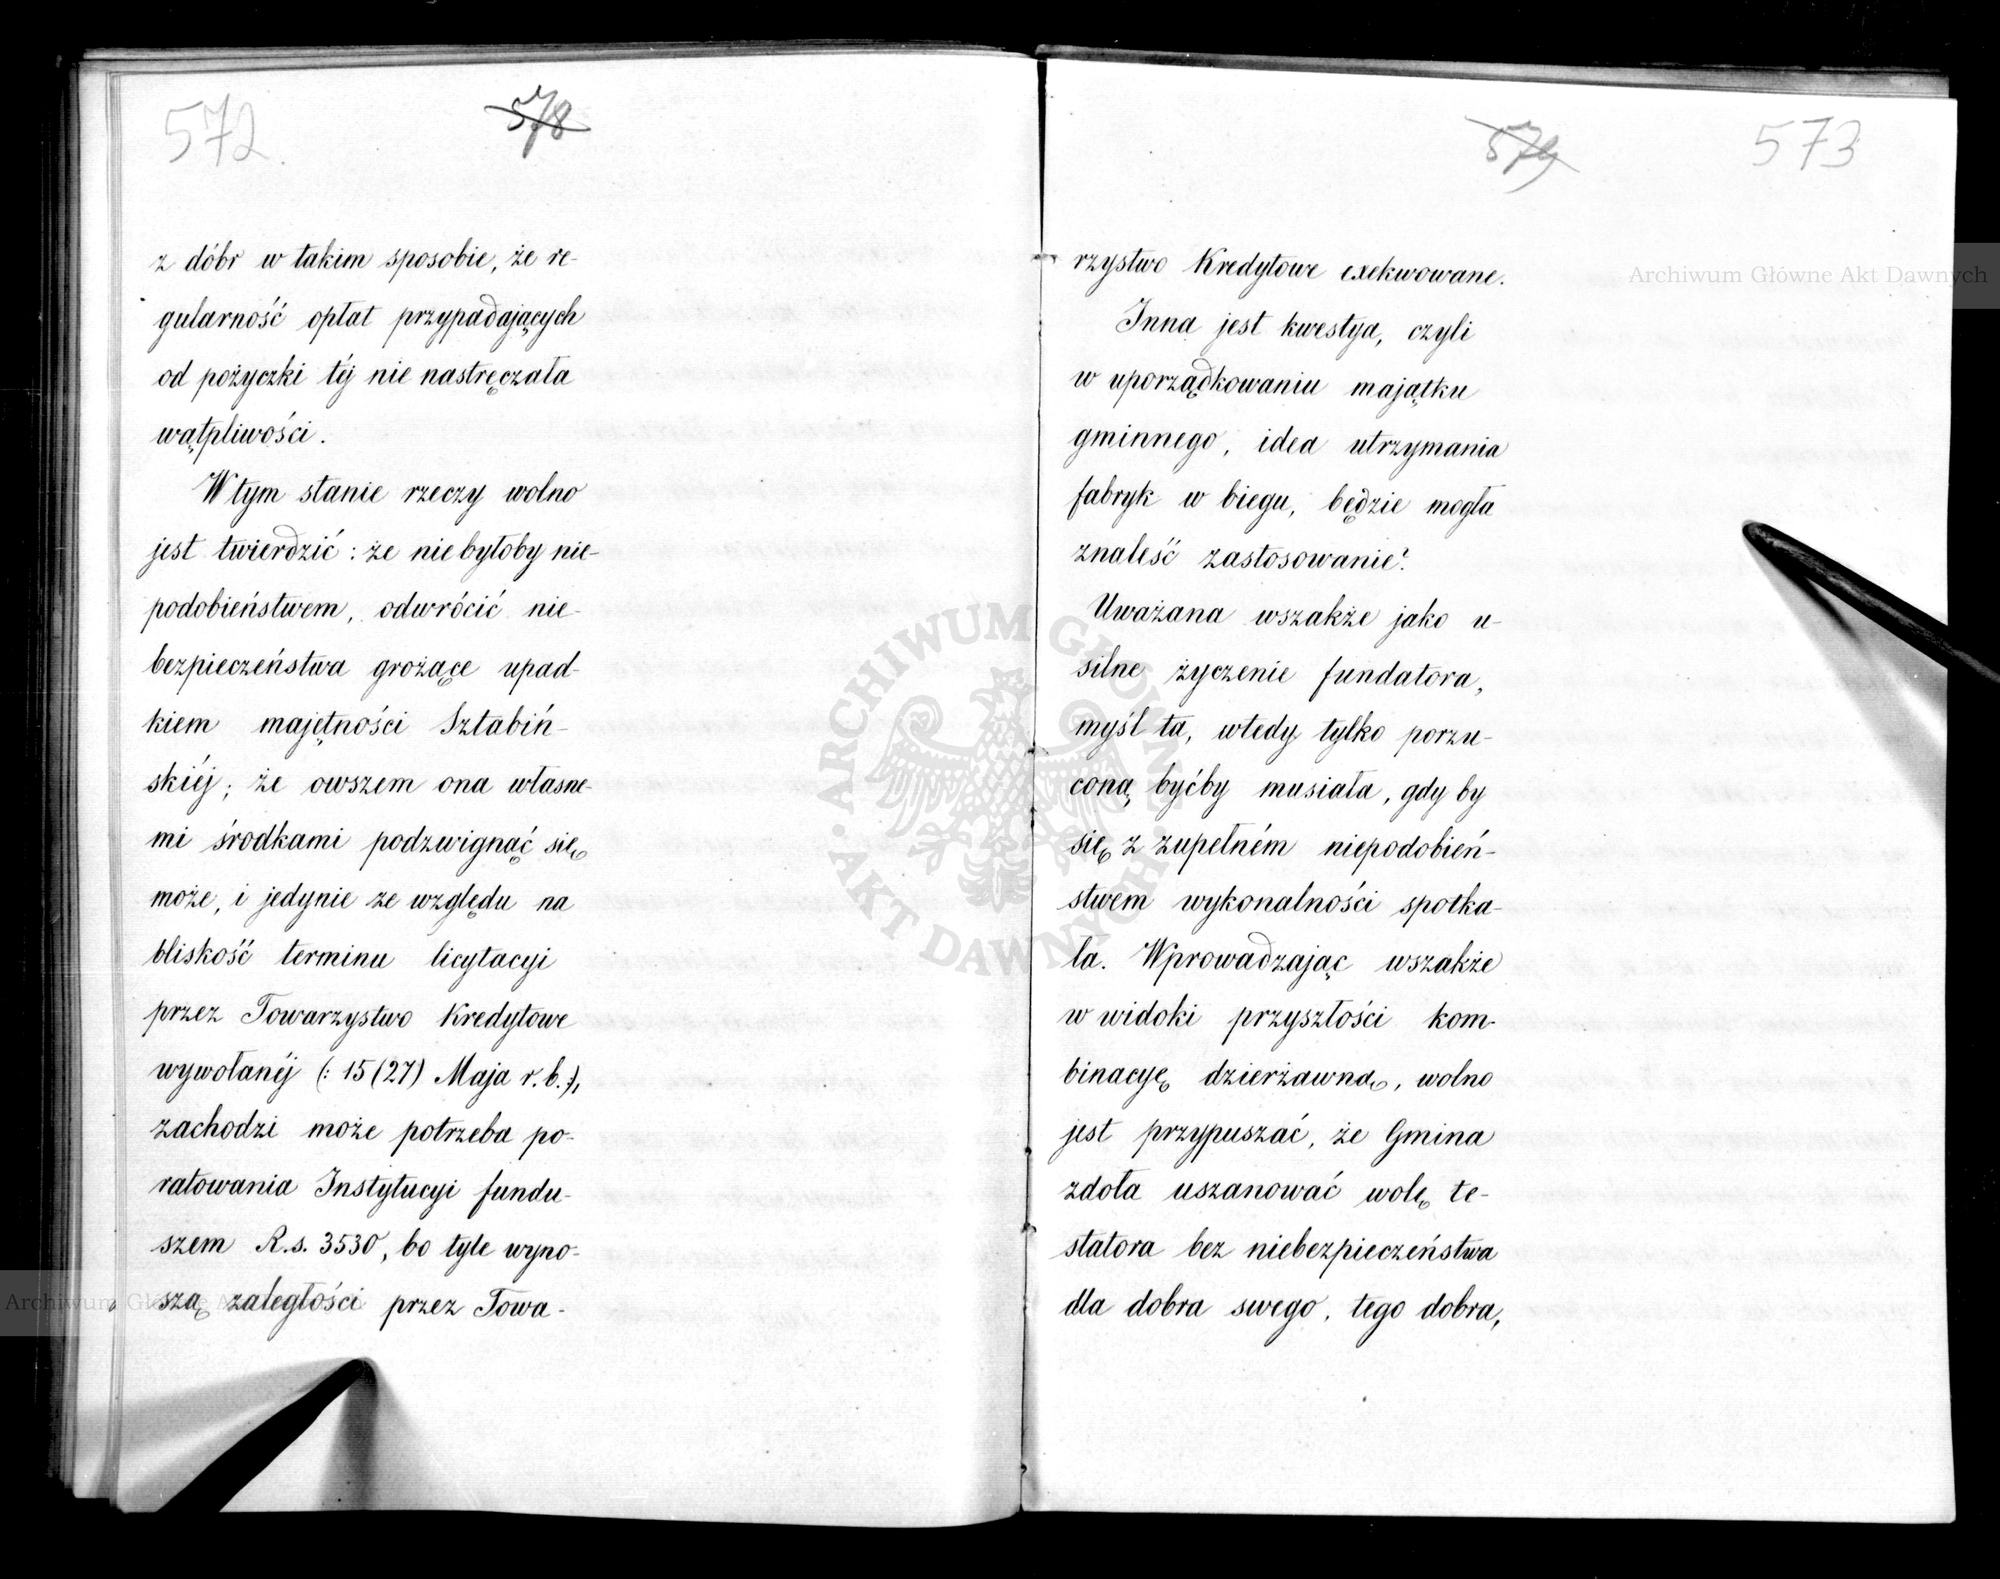 572.
578
z dóbr w takim sposobie, że re-
gularność opłat przypadających
od pożyczki téj nie nastręczała
wątpliwości.
W tym stanie rzeczy wolno
jest twierdzić: że nie byłoby nie-
podobieństwem, odwrócić nie-
bezpieczeństwa grożące upad-
kiem majętności Sztabiń-
skiéj; że owszem ona własne-
mi środkami podzwignąć się
może, i jedynie ze względu na
bliskość terminu licytacyi
przez Towarzystwo Kredytowe
wywołanéj (: 15 (27) Maja r. b. :),
zachodzi może potrzeba po-
ratowania Instytucyi fundu-
szem R.s. 3530, bo tyle wyno-
szą zaległości przez Towa-
579
573
rzystwo Kredytowe exekwowane.
Inna jest kwestya, czyli
w uporządkowaniu majątku
gminnego, idea utrzymania
fabryk w biegu, będzie mogła
znaleść zastosowanie?
Uważana wszakże jako u-
silne życzenie fundatora,
myśl ta, wtedy tylko porzu-
coną byćby musiała, gdy by
się z zupełném niepodobień-
stwem wykonalności spotka-
ła. Wprowadzając wszakże
w widoki przyszłości kom-
binacyę dzierżawną, wolno
jest przypuszać, że Gmina
zdoła uszanować wolę te-
statora bez niebezpieczeństwa
dla dobra swego, tego dobra,
Archiwum Główne Akt Dawnych
Archiwum Główne Akt Dawnych
ARCHIWUM GŁÓWNE · AKT DAWNYCH ·